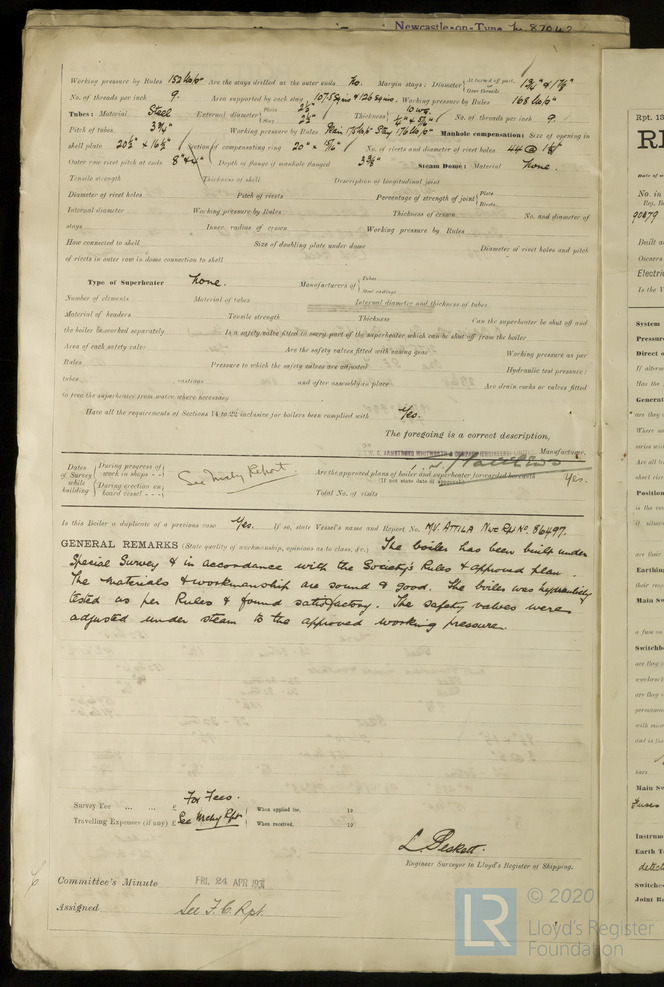 Newcastle-on-Tyne No 87042
Working pressure by Rules 152 lbs/□" Are the stays drilled at the outer ends No. Margin stays: Diameter { At turned off part, or Over threads 1 3/4" & 1 7/8"
No. of threads per inch 9. Area supported by each stay 107.5 sq ins & 126 sq ins. Working pressure by Rules 168 lbs/□"
Tubes: Material Steel External diameter { Plain 2 1/2" Stay 2 1/2" Thickness { 10 wg. 1/4" & 5/16" No. of threads per inch 9.
Pitch of tubes 3 3/4" Working pressure by Rules Plain 175 lbs/□" Stay 176 lbs/□" Manhole compensation: Size of opening in
shell plate 20 1/2" x 16 1/2" Section of compensating ring 20" x 15/16" No. of rivets and diameter of rivet holes 44 @ 1 1/8"
Outer row rivet pitch at ends 8" Depth of flange if manhole flanged 3 3/8" Steam Dome: Material None.
Tensile strength Thickness of shell Description of longitudinal joint
Diameter of rivet holes Pitch of rivets Percentage of strength of joint { Plate Rivets
Internal diameter Working pressure by Rules Thickness of crown No. and diameter of
stays Inner radius of crown Working pressure by Rules
How connected to shell Size of doubling plate under dome Diameter of rivet holes and pitch
of rivets in outer row in dome connection to shell
Type of Superheater None. Manufacturers of { Tubes Steel castings
Number of elements Material of tubes Internal diameter and thickness of tubes
Material of headers Tensile strength Thickness Can the superheater be shut off and
the boiler be worked separately Is a safety valve fitted to every part of the superheater which can be shut off from the boiler
Area of each safety valve Are the safety valves fitted with easing gear Working pressure as per
Rules Pressure to which the safety valves are adjusted Hydraulic test pressure:
tubes castings and after assembly in place Are drain cocks or valves fitted
to free the superheater from water where necessary
Have all the requirements of Sections 14 to 22 inclusive for boilers been complied with Yes.
The foregoing is a correct description,
W. G. ARMSTRONG WHITWORTH & COMPANY (ENGINEERS) LIMITED Manufacturer.
Dates of Survey while building { During progress of work in shops - - During erection on board vessel - - - See Mchy Report. Are the approved plans of boiler and superheater forwarded herewith Yes.
(If not state date of approval.)
Total No. of visits
Is this Boiler a duplicate of a previous case Yes. If so, state Vessel's name and Report No. M.V. ATTILA Nwc Rpt No. 86497.
GENERAL REMARKS (State quality of workmanship, opinions as to class, &c.) The boiler has been built under
Special Survey & in accordance with the Society's Rules & approved plan.
The materials & workmanship are sound & good. The boiler was hydraulically
tested as per Rules & found satisfactory. The safety valves were
adjusted under steam to the approved working pressure.
Survey Fee ... ... £ For Fees. When applied for, 19
Travelling Expenses (if any) £ See Mchy Rpt When received, 19
L Beskett.
Engineer Surveyor to Lloyd's Register of Shipping.
Committee's Minute FRI. 24 APR 1931
Assigned See F.C. Rpt.
© 2020
LR
Lloyd's Register
Foundation
Rpt. 13
No. in
Reg. Bo
90879
Built at
Owners
Electric
Is the V
System
Pressure
Direct o
If alter
Has the
Generat
are they
Are all t
short circ
Position
is the ve
if situat
are their
Earthing
their resp
Main Sw
a fuse o
Switchbo
are they
are they
with mic
and is th
Main Sw
Fuses
Instrum
Earth Te
detect
Switches
Joint Bo